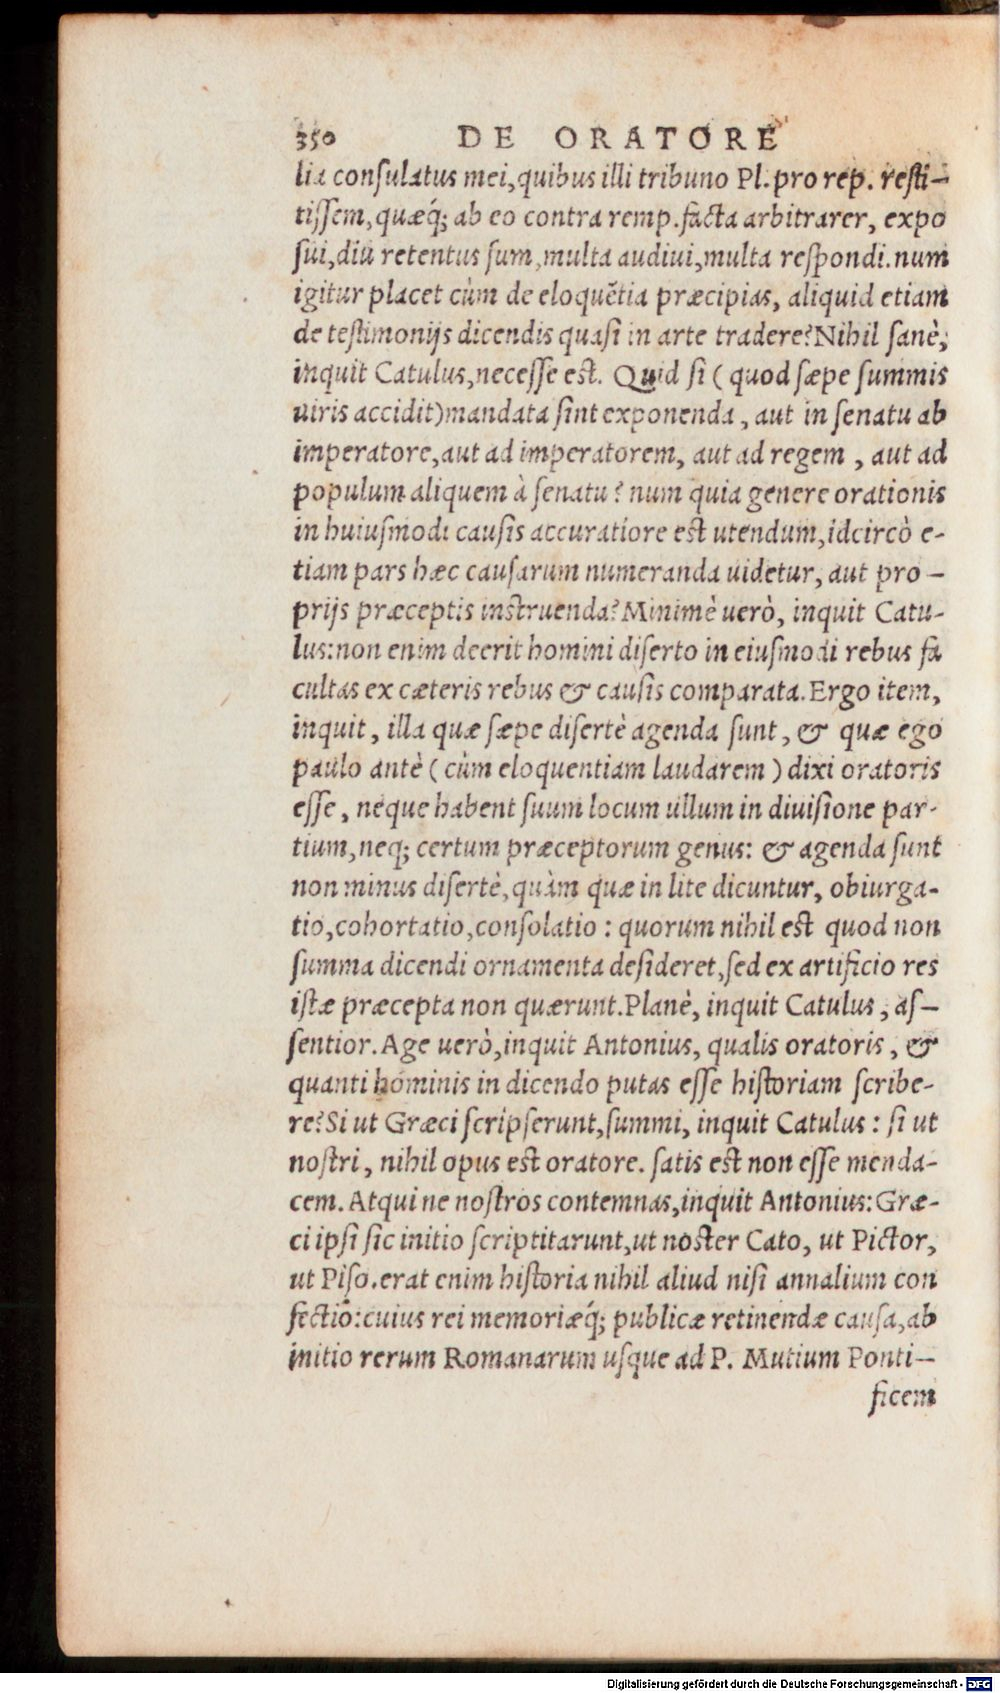 350 DE ORATORE
lia consulatus mei, quibus illi tribuno Pl. pro rep. resti-
tissem, quæq́; ab eo contra remp. facta arbitrarer, expo
sui, diu retentus sum, multa audiui, multa respondi. num
igitur placet cùm de eloquẽtia præcipias, aliquid etiam
de testimonijs dicendis quasi in arte tradere? Nihil sanè,
inquit Catulus, necesse est. Quid si (quod sæpe summis
uiris accidit) mandata sint exponenda, aut in senatu ab
imperatore, aut ad imperatorem, aut ad regem, aut ad
populum aliquem à senatu? num quia genere orationis
in huiusmodi causis accuratiore est utendum, idcircò e-
tiam pars hæc causarum numeranda uidetur, aut pro-
prijs præceptis instruenda? Minimè uerò, inquit Catu-
lus: non enim deerit homini diserto in eiusmodi rebus fa
cultas ex cæteris rebus & causis comparata. Ergo item,
inquit, illa quæ sæpe disertè agenda sunt, & quæ ego
paulo antè (cùm eloquentiam laudarem) dixi oratoris
esse, neque habent suum locum ullum in diuisione par-
tium, neq; certum præceptorum genus: & agenda sunt
non minus disertè, quàm quæ in lite dicuntur, obiurga-
tio, cohortatio, consolatio: quorum nihil est quod non
summa dicendi ornamenta desideret, sed ex artificio res
istæ præcepta non quærunt. Planè, inquit Catulus, as-
sentior. Age uerò, inquit Antonius, qualis oratoris, &
quanti hominis in dicendo putas esse historiam scribe-
re? Si ut Græci scripserunt, summi, inquit Catulus: si ut
nostri, nihil opus est oratore. satis est non esse menda-
cem. Atqui ne nostros contemnas, inquit Antonius: Græ-
ci ipsi sic initio scriptitarunt, ut noster Cato, ut Pictor,
ut Piso. erat enim historia nihil aliud nisi annalium con
fectio: cuius rei memoriæq́; publicæ retinendæ causa, ab
initio rerum Romanarum usque ad P. Mutium Ponti-
ficem
Digitalisierung gefördert durch die Deutsche Forschungsgemeinschaft - DFG